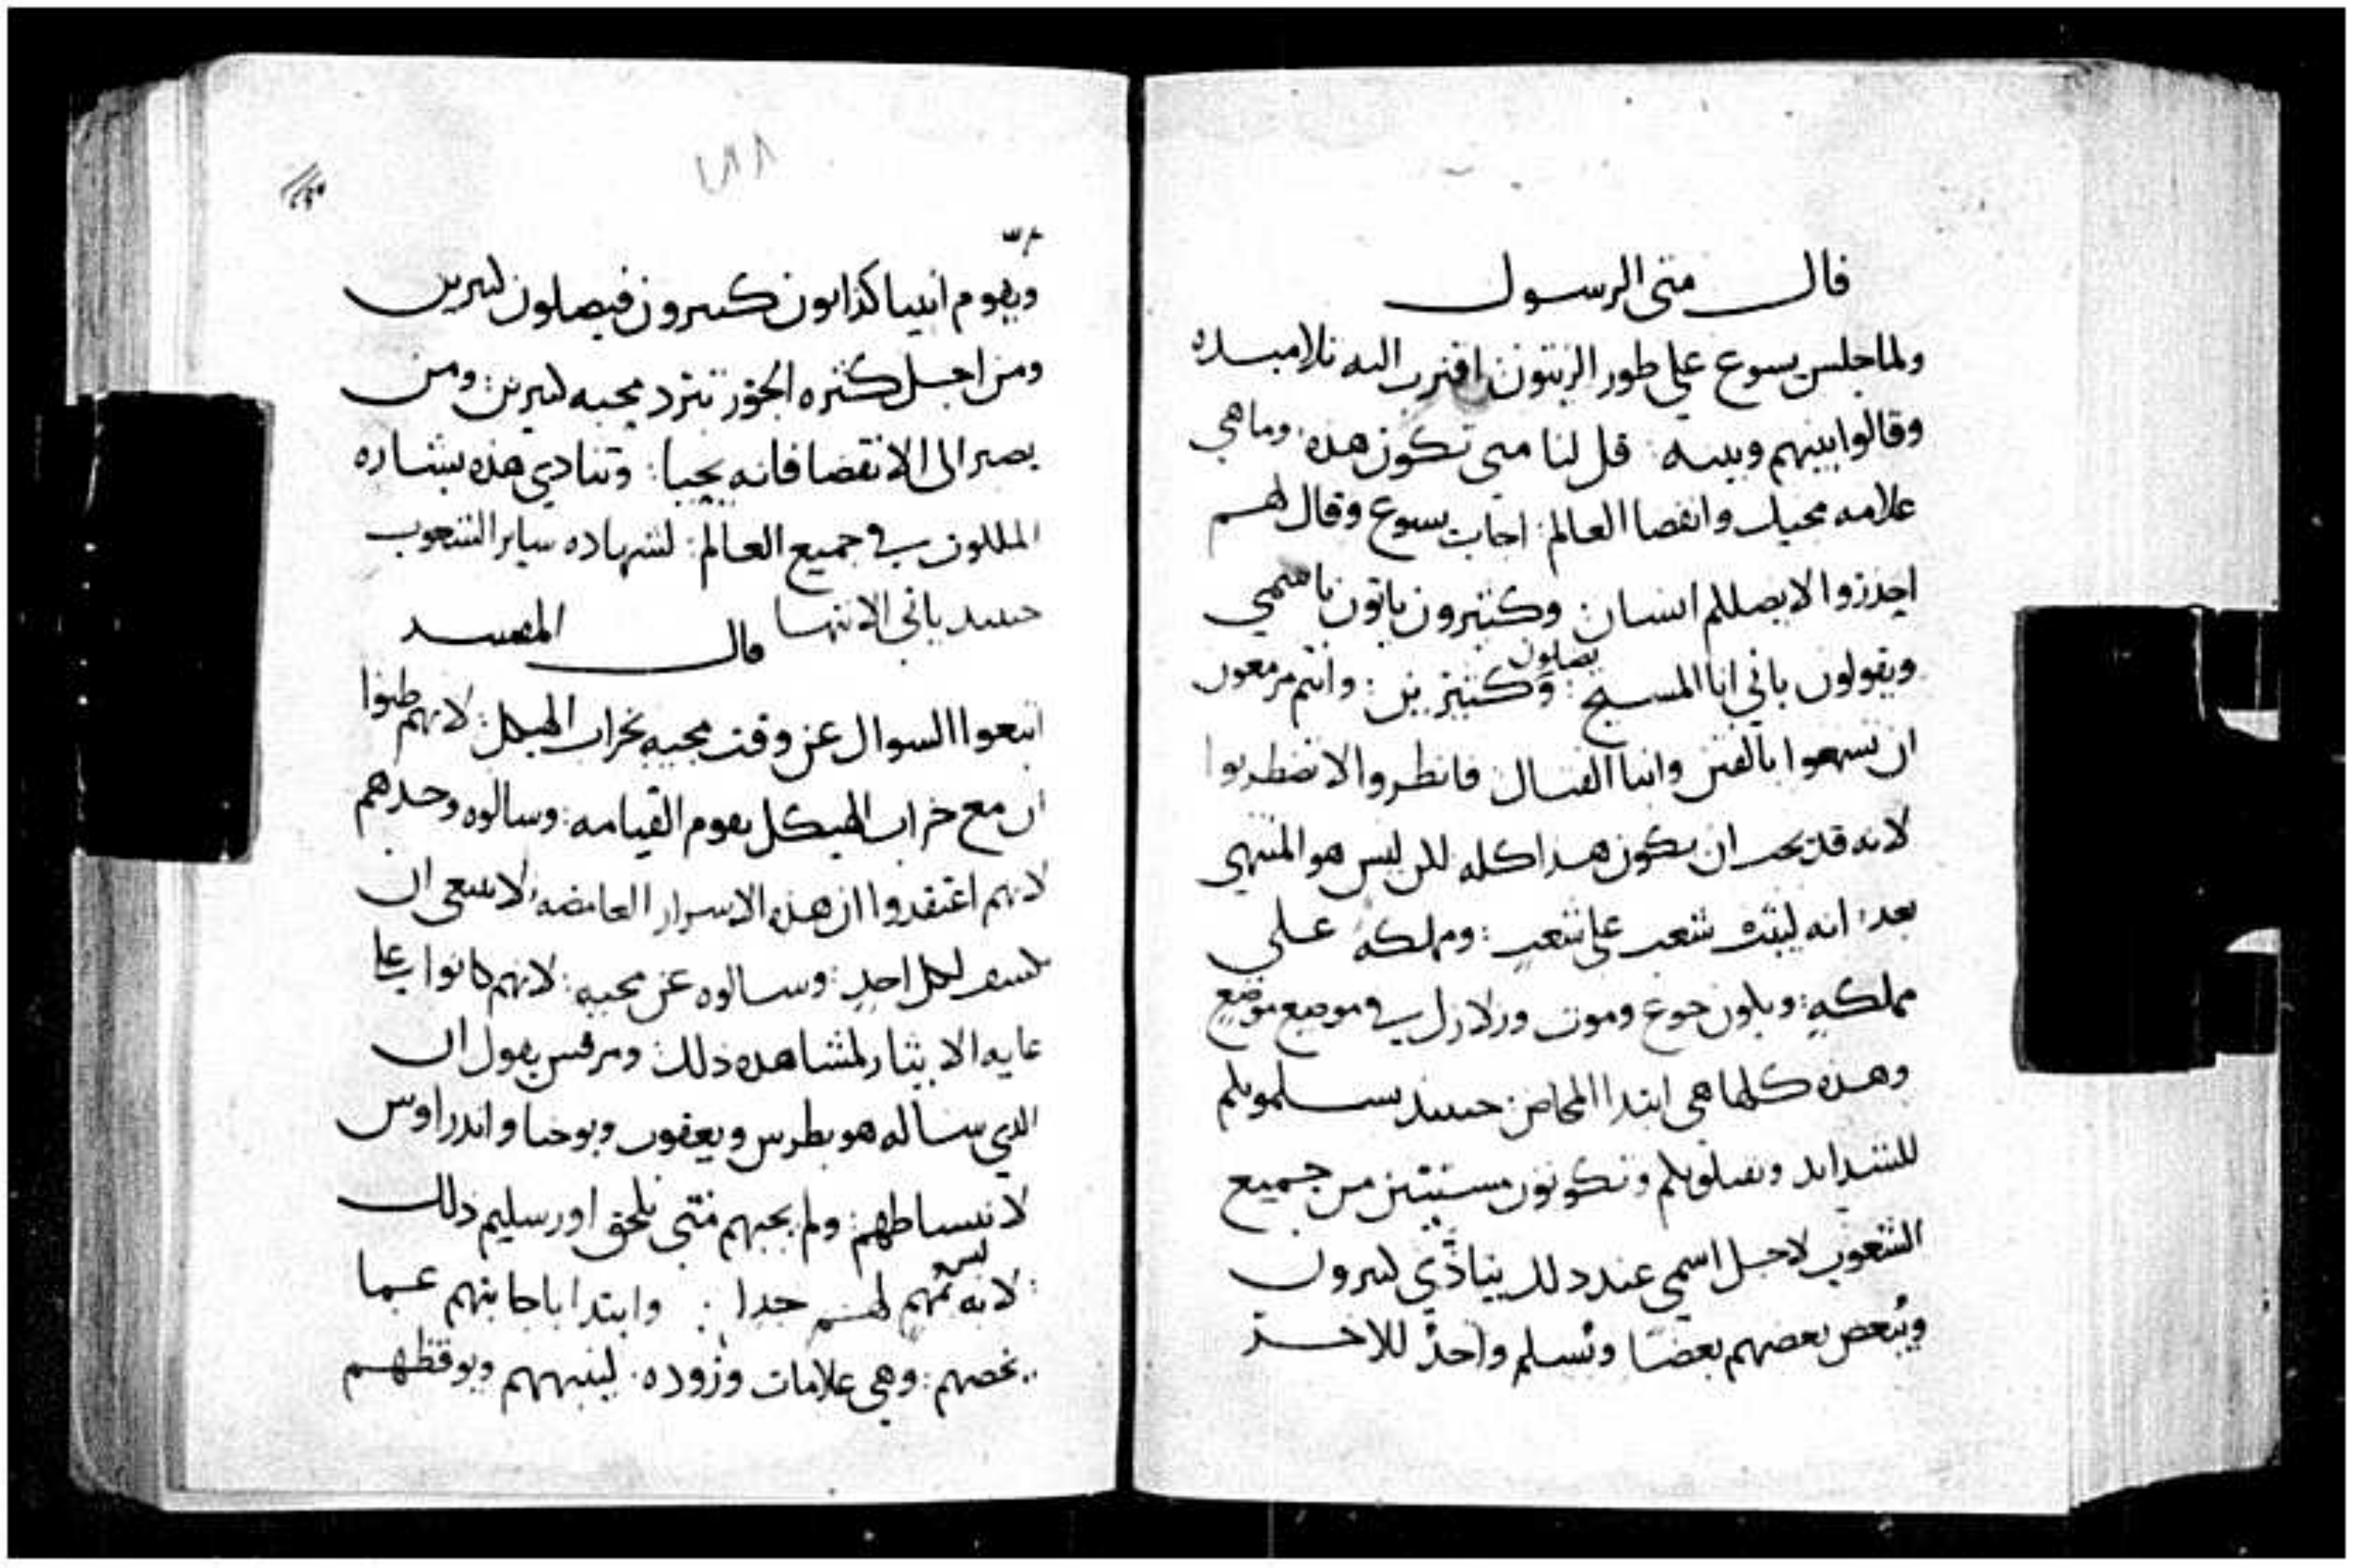 قال متى الرسول
ولما جلس يسوع علي طور الزيتون اقترب اليه تلاميده
وقالوا بينهم وبينه : قل لنا متى تكون هذه وماهي
علامه مجيك وانقضا العالم : اجاب يسوع وقال لهم
احذروا لا يضللكم انسان وكثيرون ياتون باسمي
ويقولون باني انا المسيح : يضلون وكثيرين : وانتم مزمعون
ان تسمعوا بالفتن وانبا القتال فانظروا لا تضطربوا
لانه قد يجب ان يكون هذا كله لكن ليس هو المنتهي
بعد : انه ليثب شعب على شعب : ومملكة علي
مملكةٍ : ويكون جوع وموت وزلازل في موضع موضع
وهذه كلها هي ابتدا المخاض : حينيد يسلمونكم
للشدايد ويقتلونكم وتكونون مسنيين من جميع
الشعوب لاجل اسمي عند ذلك يتاذي كثيرون
ويبغض بعضهم بعضًا ويُسلم واحدٌ للاخر
٢٨٨
ويقوم انبيا كذابون كثيرون فيضلون كثيرين
ومن اجل كثره الجور تبرد محبه كثيرين : ومن
يصبر الى الانقضا فانه يحيا : وتنادي هذه بشاره
الملكون في جميع العالم : لشهاده ساير الشعوب
حينيد ياتي الانتها قال المفسر
اتبعوا السوال عن وقت مجيه بخراب الهيكل : لانهم ظنوا
ان مع خراب الهيكل يقوم القيامه : وسالوه وحدهم
لانهم اعتقدوا ان هذه الاسرار الغامضه لا ينبغي ان
تكشف لكل احدٍ : وسالوه عن مجيه : لانهم كانوا علي
غايه الايثار لمشاهده ذلك : ومرقس يقول ان
الذي ساله هو بطرس ويعقوب ويوحنا واندراوس
لانبساطهم : ولم يجبهم متى يلحق اورسليم ذلك
لانه ليس لهم جدا : وابتدا باجابتهم عما
يخصهم : وهي علامات وروده : لينبههم ويوقظهم